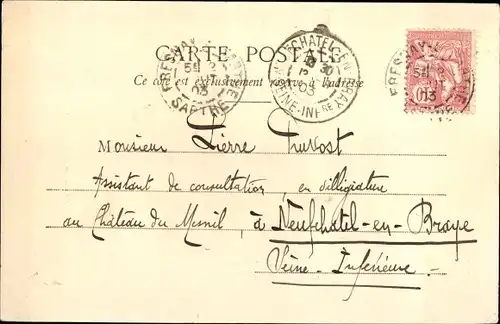 CARTE POSTALE
Ce côté est exclusivement réservé à l'adresse
NEUFCHATEL-EN-BRAY
SEINE-INFRE
03
SARTHE
03
FRESNAY
03
10
Monsieur Pierre Pruvost
Assistant de consultation, en villégiature
au Château du Mesnil, à Neufchatel-en-Braye
Seine-Inférieure.